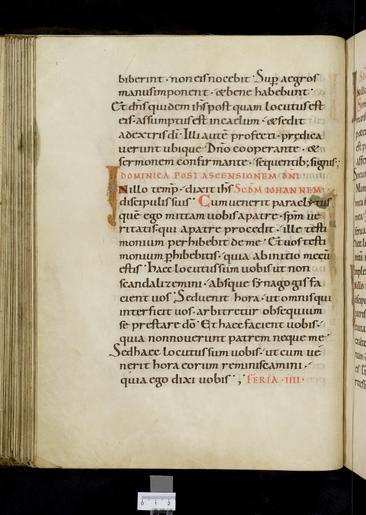 biberint · non eis nocebit · Sup aegros
manus imponent · & bene habebunt ·
Et dns quidem ihs post quam locutus est
eis · assumptus est in caelum · & sedit
a dextris di · Illi aute profecti · predica
verunt ubique Dno cooperante · &
sermonem confirmante · sequentib; signis;
DOMINICA POST ASCENSIONEM DNI
In illo temp · dixit ihs SCDM IOHANNEM
discipulis suis · Cum venerit paraclytus
que ego mittam vobis a patre · spm ve
ritatis · qui a patre procedit · ille testi
monium perhibebit de me · Et vos testi
monium phibebitis · quia ab initio mecu
estis · haec locutus sum vobis · ut non
scandalizemini · Absque synagogis fa
cient vos · Sed venit hora · ut omnis qui
interficit vos · arbitretur obsequium
se prestare do · Et haec facient vobis ·
quia non noverunt patrem neque me ·
Sed haec locutus sum vobis · ut cum ve
nerit hora eorum reminiscamini ·
quia ego dixi vobis ; FERIA · IIII ·